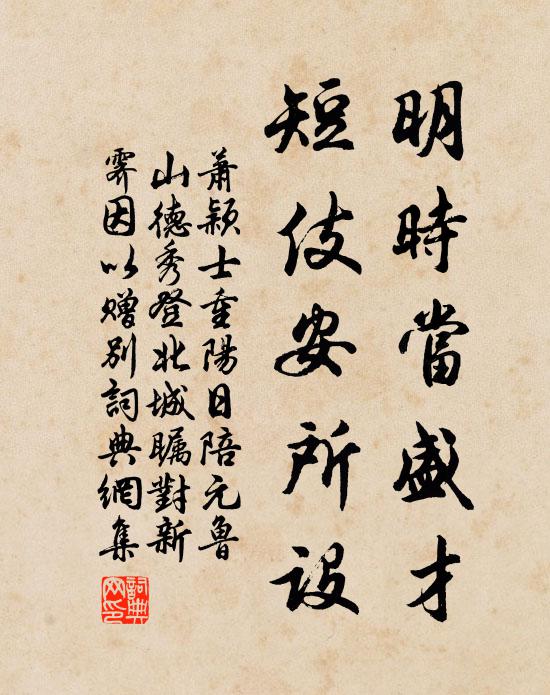 明時當盛才
短伎安所設
蕭穎士重陽日陪元魯
山德秀登北城矚對新
霽因以贈別詞典網集
詞典網印